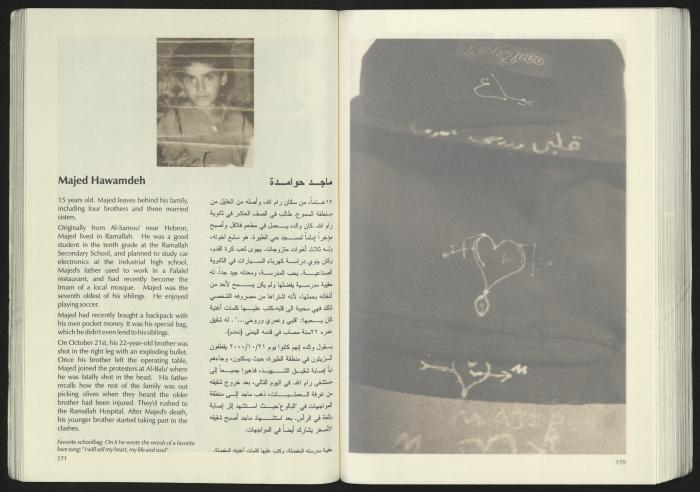 Majed Hawamdeh
15 years old. Majed leaves behind his family,
including four brothers and three married
sisters.
Originally from Al-Samou' near Hebron,
Majed lived in Ramallah. He was a good
student in the tenth grade at the Ramallah
Secondary School, and planned to study car
electronics at the industrial high school.
Majed's father used to work in a Falafel
restaurant, and had recently become the
Imam of a local mosque. Majed was the
seventh oldest of his siblings. He enjoyed
playing soccer.
Majed had recently bought a backpack with
his own pocket money. It was his special bag,
which he didn't even lend to his siblings.
On October 21st, his 22-year-old brother was
shot in the right leg with an exploding bullet.
Once his brother left the operating table,
Majed joined the protests at Al-Balu' where
he was fatally shot in the head. His father
recalls how the rest of the family was out
picking olives when they heard the older
brother had been injured. They'd rushed to
the Ramallah Hospital. After Majed's death,
his younger brother started taking part in the
clashes.
Favorite schoolbag. On it he wrote the words of a favorite
love song: "I will sell my heart, my life and soul".
171
ماجد حوامدة
١٥عاماً، من سكان رام الله، وأصله من الخليل من
منطقة السموع. طالب في الصف العاشر في ثانوية
رام الله. كان والده يعمل في مطعم فلافل وأصبح
مؤخراً إماماً لمسجد حي الطيرة. هو سابع أخوته،
وله ثلاث أخوات متزوجات. يهوى لعب كرة القدم،
وكان ينوي دراسة كهرباء السيارات في الثانوية
الصناعية. يحب المدرسة، ومعدله جيد جداً. له
حقيبة مدرسية يفضلها ولم يكن يسمح لأحد من
أشقائه بحملها، لأنه اشتراها من مصروفه الشخصي
لذلك فهي محببة الى قلبه،كتب عليها كلمات أغنية
كان يحبها: "قلبي وعمري وروحي..." . له شقيق
عمره ٢٢سنة مصاب في قدمه اليمنى (دمدم).
يقول والده إنهم كانوا يوم ٢٠٠٠/١٠/٢١ يقطفون
الزيتون في منطقة الطيرة، حيث يسكنون، وجاءهم
نبأ إصابة شقيق الشهيد، فذهبوا جميعاً إلى
مستشفى رام الله. في اليوم التالي، بعد خروج شقيقه
من غرفة العمليات، ذهب ماجد إلى منطقة
المواجهات في "البالوع"حيث استشهد إثر إصابة
بالغة في الرأس. بعد استشهاد ماجد أصبح شقيقه
الأصغر يشارك أيضاً في المواجهات.
حقيبة مدرسته المفضلة، وكتب عليها كلمات أغنيته المفضلة.
170